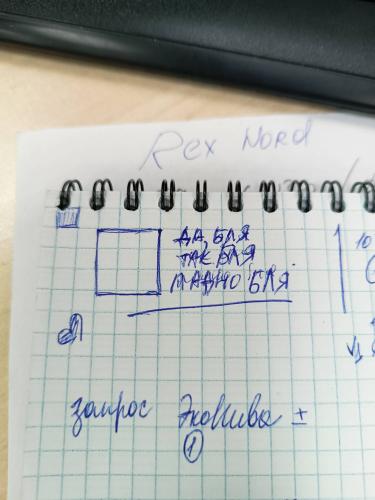 Rex Nord
ДА, БЛЯ
ТАК БЛЯ
ЛАДНО БЛЯ.
10
запрос ЭкоНива ±
1